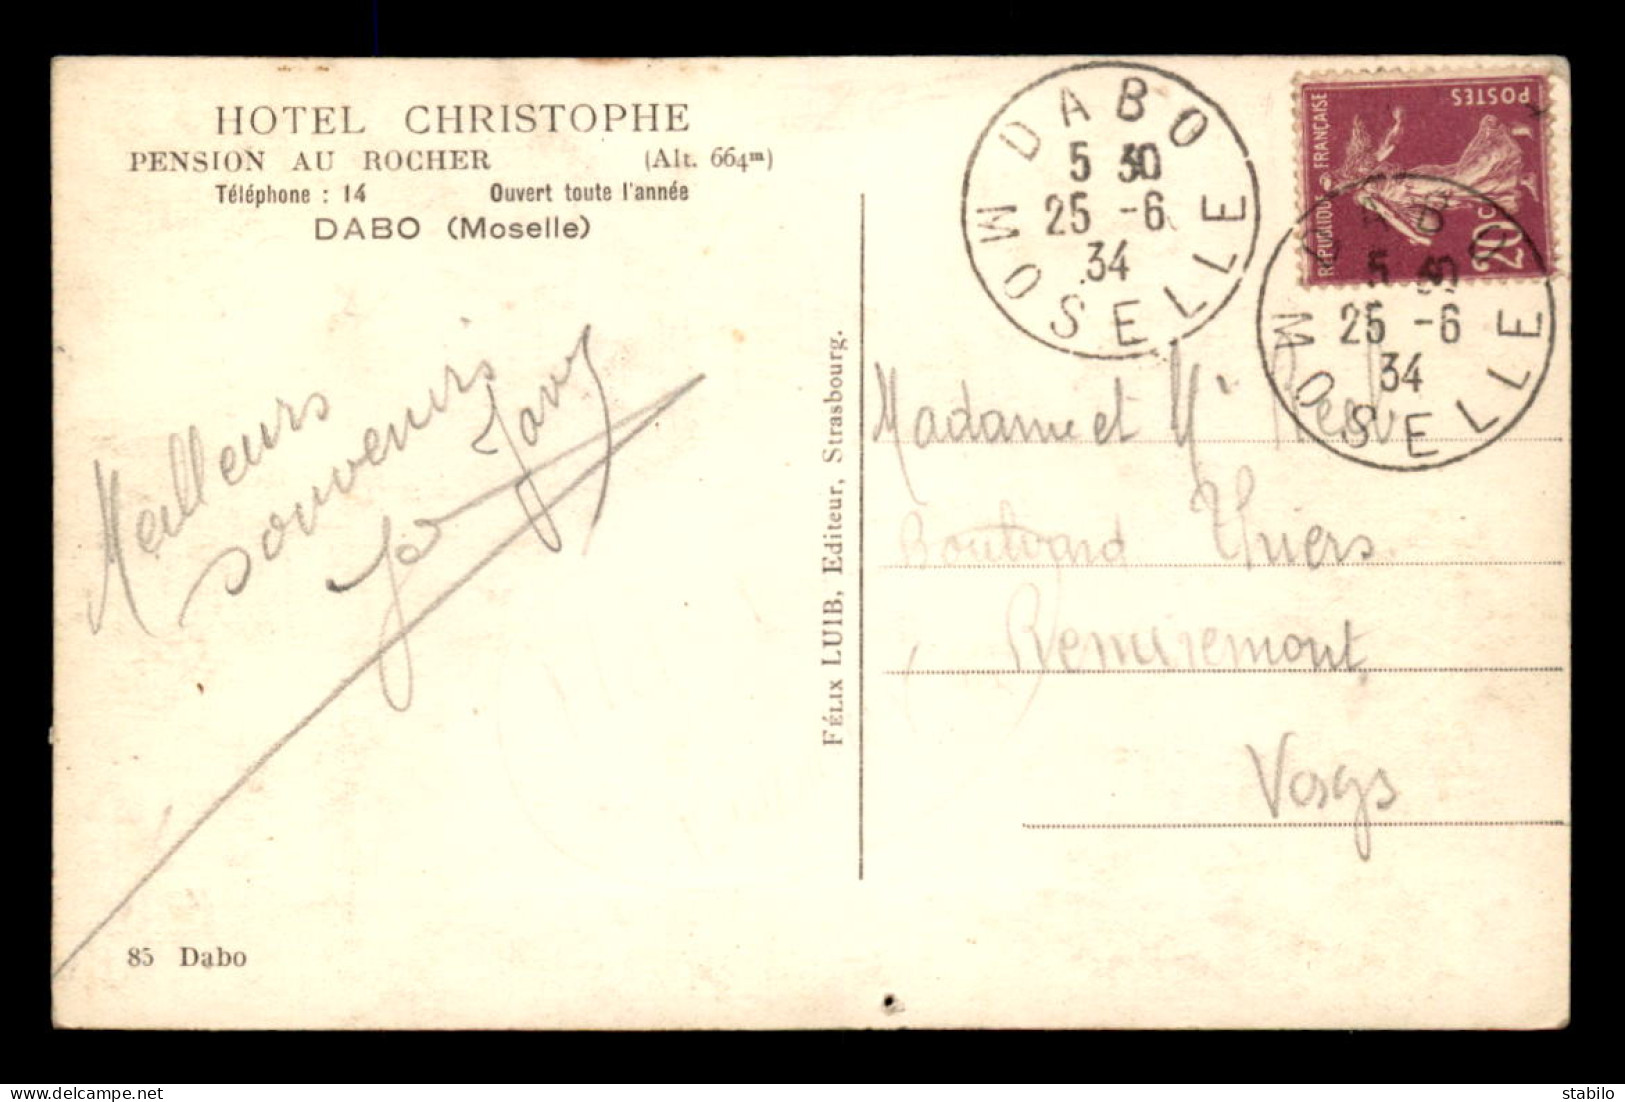 HOTEL CHRISTOPHE
PENSION AU ROCHER (Alt. 664m)
Téléphone : 14 Ouvert toute l'année
DABO (Moselle)
Meilleurs
souvenirs
85 Dabo
FÉLIX LUIB, Editeur, Strasbourg.
DABO
5 30
25 -6
34
MOSELLE
POSTES
REPUBLIQUE FRANÇAISE
20c
DABO
5
25 -6
34
MOSELLE
Madame et Mr
Boulvard Thiers
Remiremont
Vosgs
stabilo